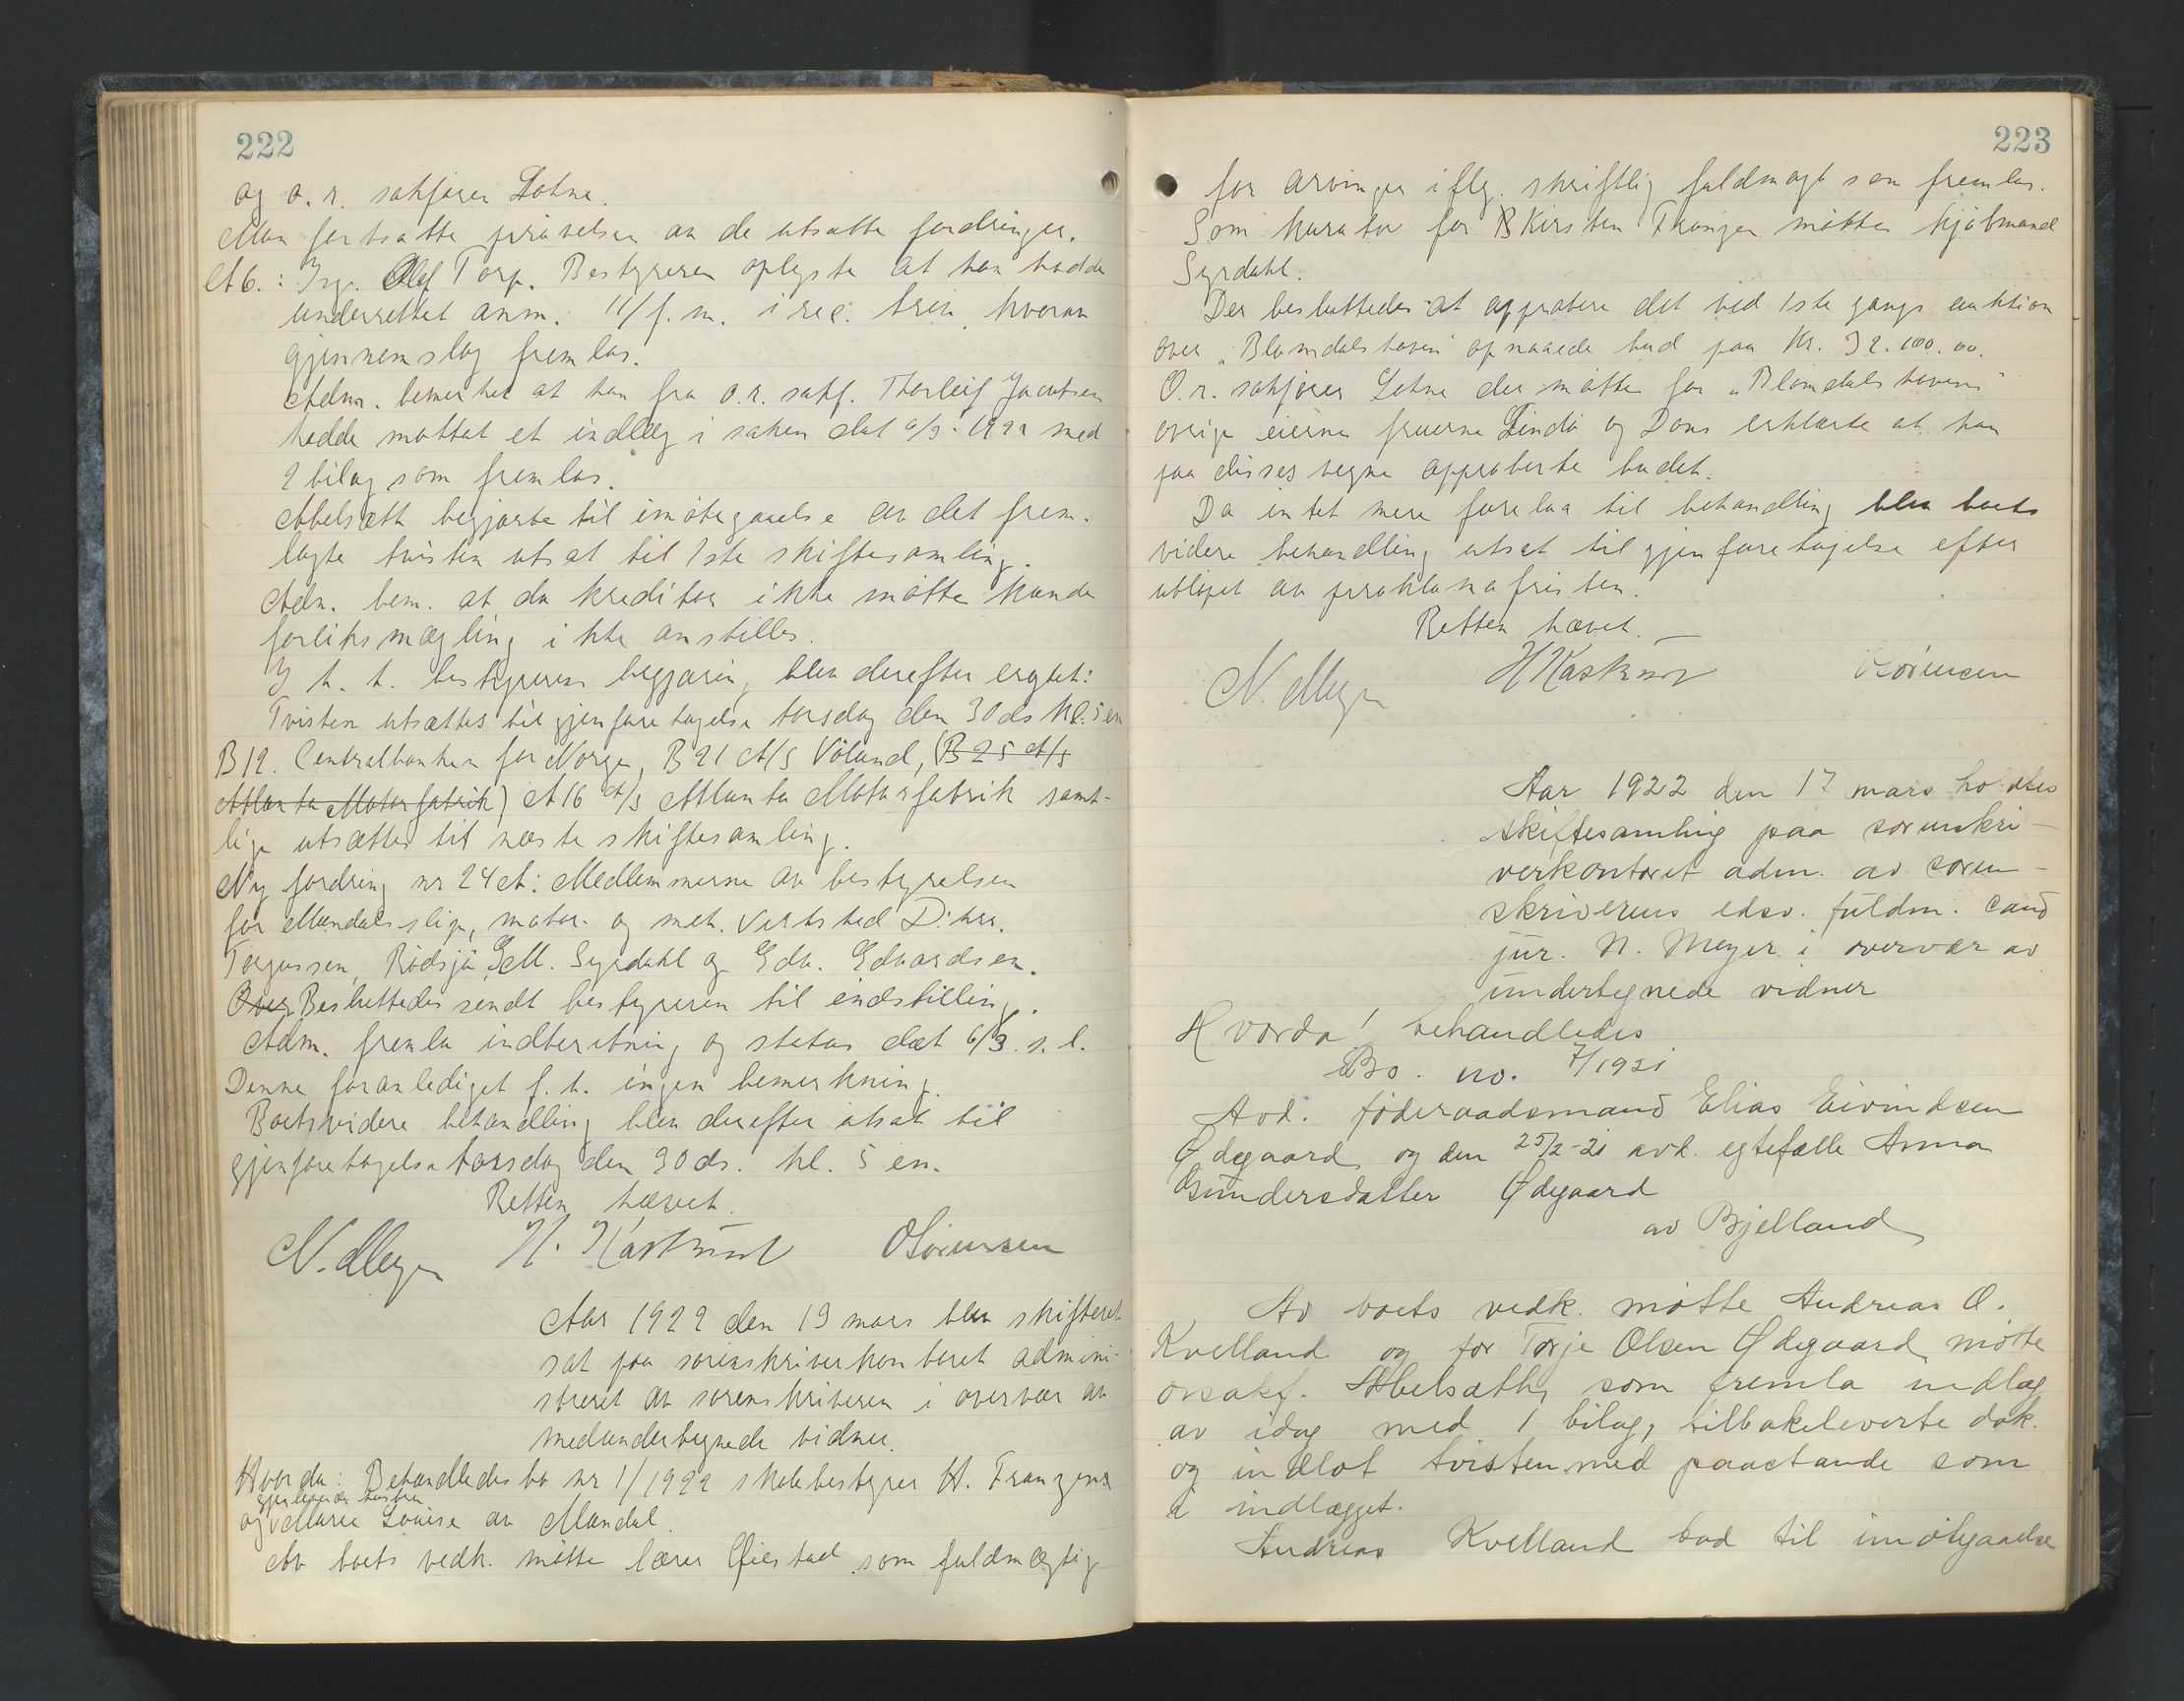 222
og o. r. sakfører Lohne.
Man fortsatte prøvelsen av de utsatte fordringer.
A 6.: Ing. Olaf Torp. Bestyreren oplyste at han hadde
underrettet anm. 11/f. m. i rec. brev, hvorav
gjennemslag fremlas.
Adm. bemerket at han fra o.r. sakf. Thorleif Jacobsen
hadde mottat et indlæg i saken dat 6/3-1922 med
2 bilag som fremlas.
Abelsæth begjærte til imøtegaaelse av det frem-
lagte tvisten utsat til 1ste skiftesamling.
Adm. bem. at da kreditor ikke møtte kunde
forliksmægling ikke anstilles.
I h. t. bestyrerens begjæring blev derefter avgjet:
Tvisten utsættes til gjenforetagelse torsdag den 30 ds kl. 5 em
B 12. Centralbanken for Norge, B 21 A/S Vølund, (B 25 A/S
Atlanta Motorfabrik) A 16 A/S Atlanta Motorfabrik samt-
lige utsættes til næste skiftesamling.
Ny fordring nr 24 A: Medlemmerne av bestyrelsen
for Mandals slip, motor- og mek. Verksted D'hrr.
Tergussen, Rødsjø, G. M. Syrdahl og Edv. Edvardsen.
Over Besluttedes sendt bestyreren til indstilling.
Adm. fremla indberetning og status dat 6/3 s. l.
Denne foranlediget f. t. ingen bemerkning.
Boets videre behandling blev derefter utsat til
gjenforetagelse torsdag den 30 ds. kl. 5 em.
Retten hævet.
N. Meyer H. Kastrud O Sørensen
Aar 1922 den 13 mars blev skifteret
sat paa sorenskriverkontoret admini-
streret av sorenskriveren i overvær av
medundertegnede vidner.
Hvorda: Behandledes bo nr 1/1922 skolebestyrer H. Franzens
gjenlevende hustru
og Marie Louise av Mandal.
Av boets vedk. møtte lærer Gjestad som fuldmægtig
223
for arvinger iflg. skriftlig fuldmagt som fremlas.
Som kurator for Kirsten Franzen møtte kjøbmand
Syrdahl.
Der besluttedes at approbere det ved 1ste gangs auktion
over "Blomdalshaven" opnaaede bud paa Kr. 32.100.00.
O.r. sakfører Lohne der møtte for "Blomdalshavens"
øvrige eiere fruerne Lindø og Dons erklærte at han
paa disses vegne approberte budet.
Da intet mere forelaa til behandling blev boets
videre behandling utsat til gjenforetagelse efter
utløpet av proklamafristen.
Retten hævet.
N. Meyer H Kastrud O Sørensen
Aar 1922 den 17 mars holdtes
skiftesamling paa sorenskri-
verkontoret adm. av soren-
skriverens edsv. fuldm. cand
jur. N. Meyer i overvær av
undertegnede vidner
Hvorda! behandledes
Bo. no. 7/1921
Avd. føderaadsmand Elias Eivindsen
Ødegaard og den 25/2-21 avd. egtefælle Anna
Gundersdatter Ødegaard
av Bjelland
Av boets vedk. møtte Andreas O.
Kvelland og for Torje Olsen Ødegaard møtte
orsakf. Abelsæth, som fremla indlæg
av idag med 1 bilag, tilbakeleverte dok.
og indlot tvisten med paastande som
i indlægget.
Andreas Kvelland bad til imøtegaaelse